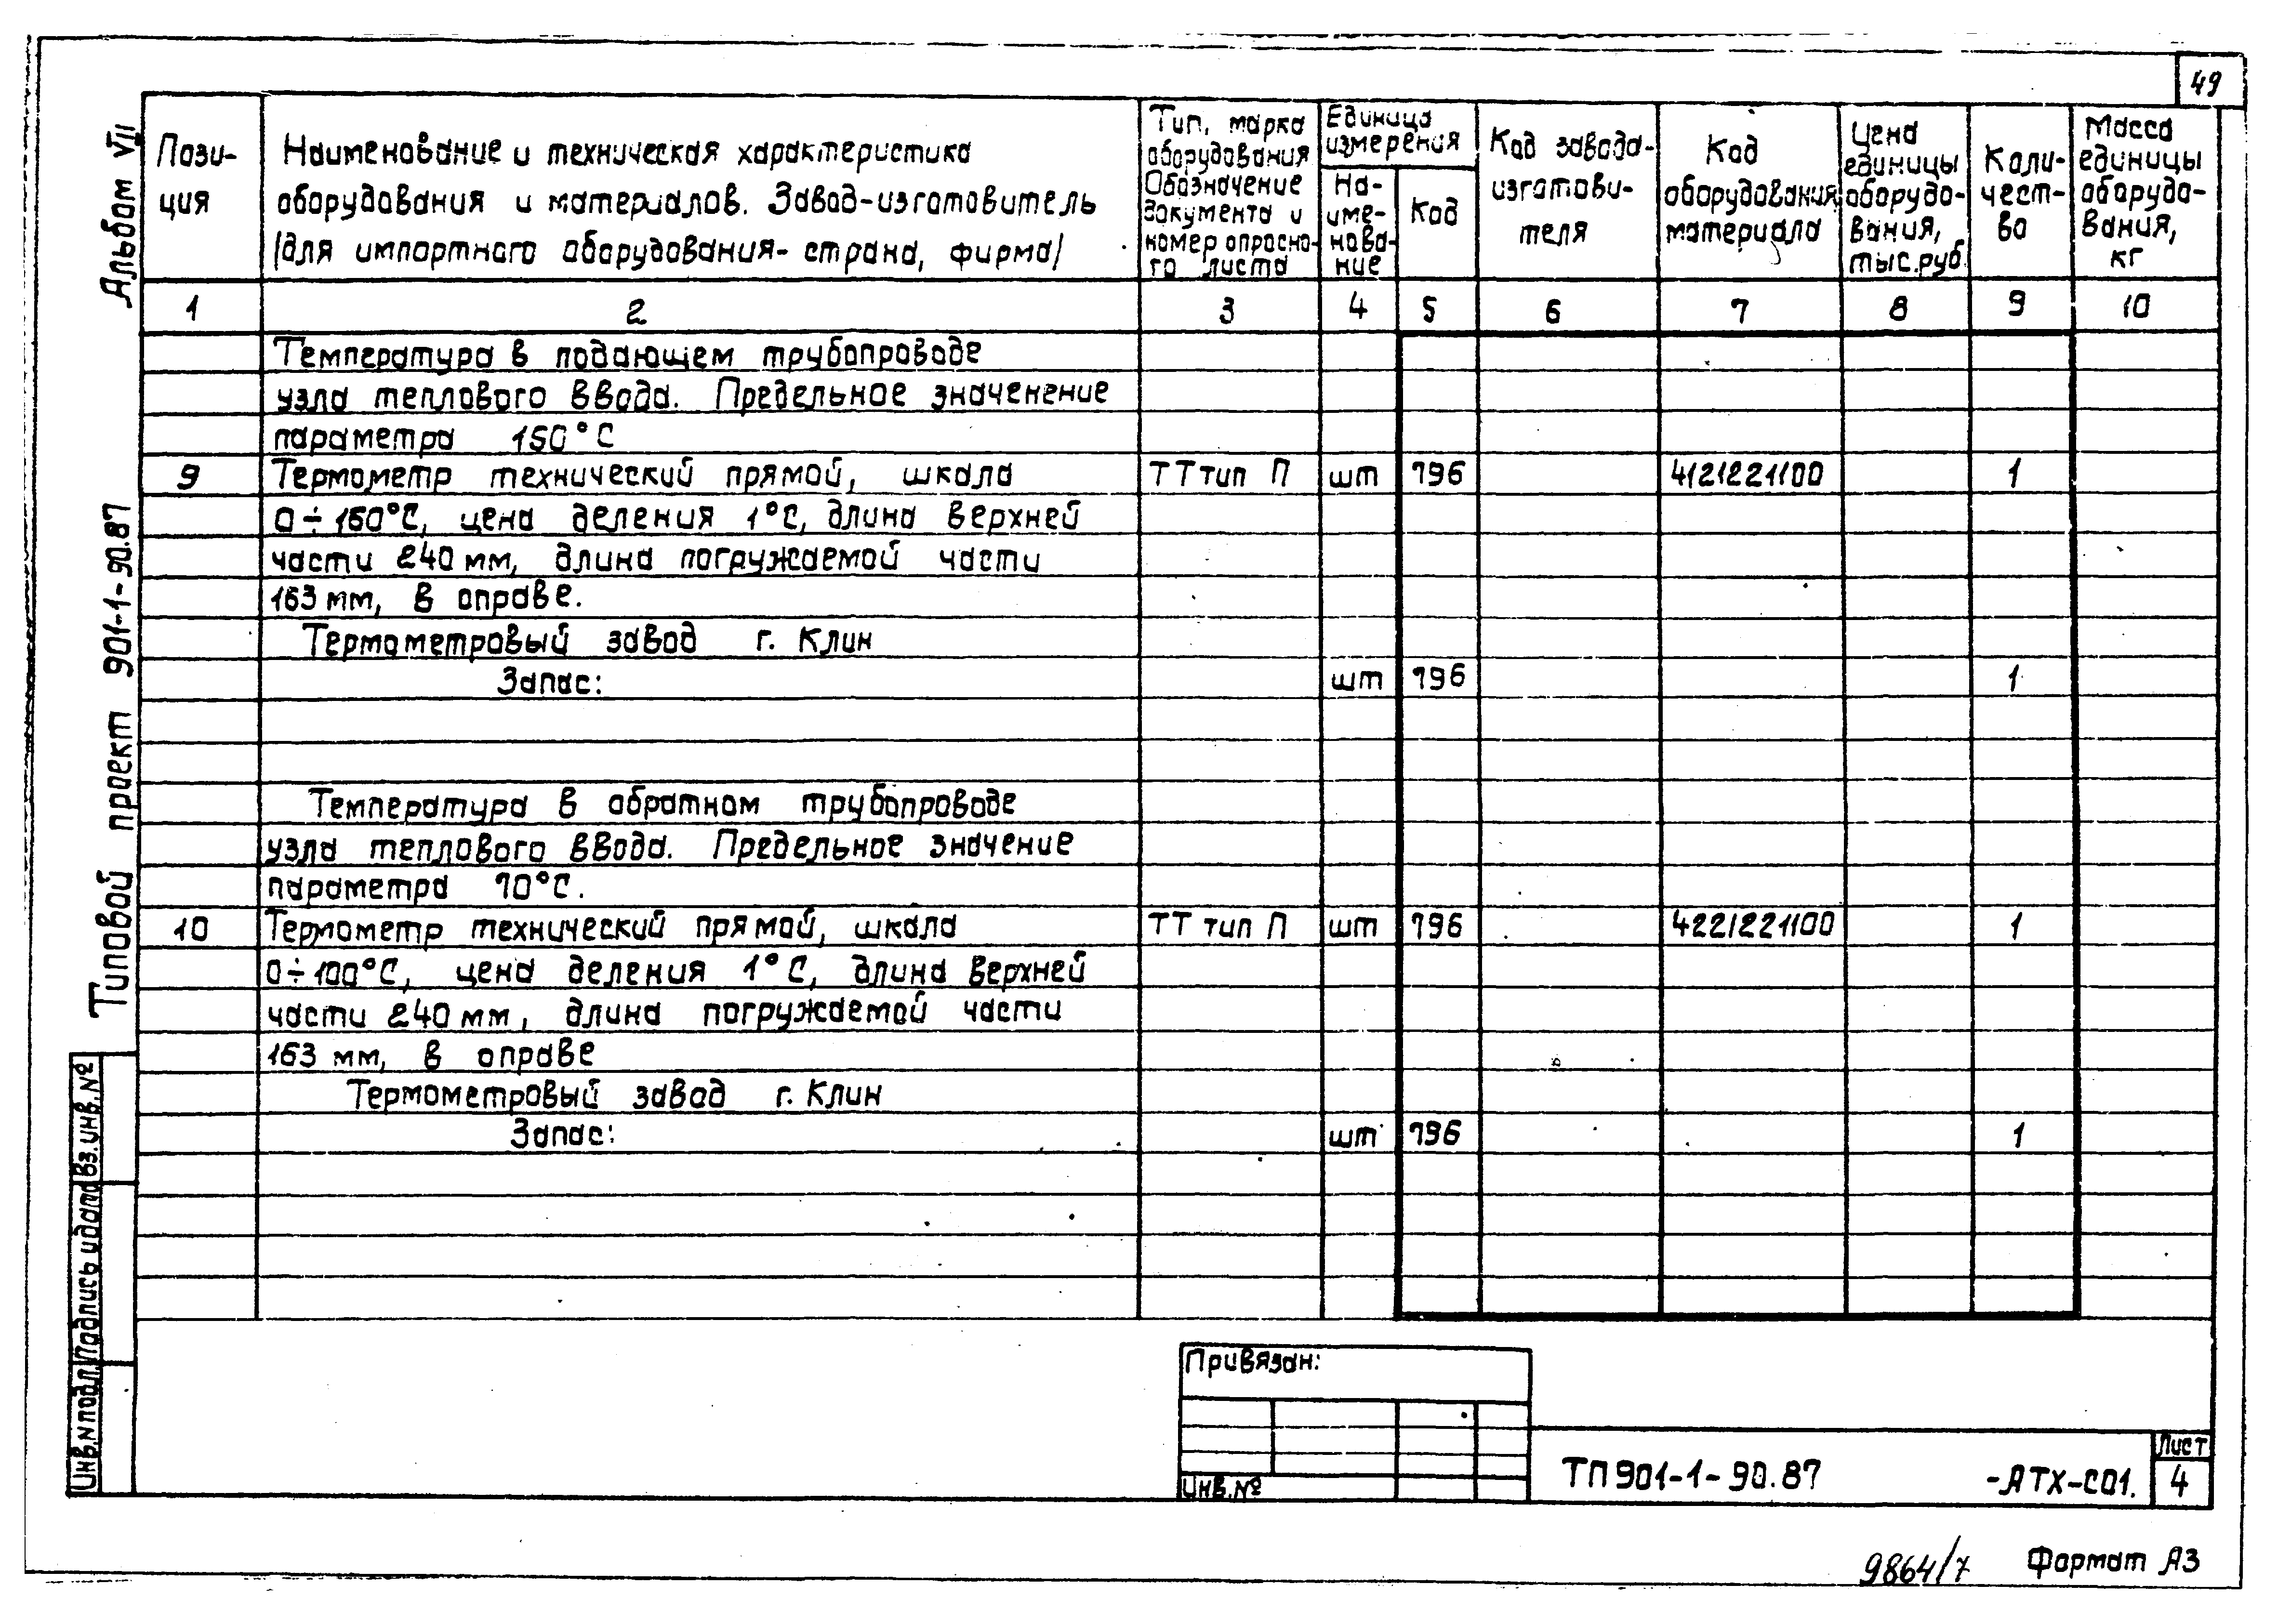 49
Альбом VII
Типовой проект 901-1-90.87
Пози-
ция
Наименование и техническая характеристика
оборудования и материалов. Завод-изготовитель
/для импортного оборудования- страна, фирма/
Тип, марка
оборудования
Обозначение
документа и
номер опросно-
го листа
Единица
измерения
На-
име-
нова-
ние
Код
Код завода-
изготови-
теля
Код
оборудования
материала
Цена
единицы
оборудо-
вания,
тыс.руб.
Коли-
чест-
во
Масса
единицы
оборудо-
вания,
кг
1 2 3 4 5 6 7 8 9 10
Температура в подающем трубопроводе
узла теплового ввода. Предельное значенение
параметра 150°С
9 Термометр технический прямой, шкала ТТ тип П шт 796 4121221100 1
0÷160°С, цена деления 1°С, длина верхней
части 240 мм, длина погружаемой части
163 мм, в оправе.
Термометровый завод г. Клин
Запас: шт 796 1
Температура в обратном трубопроводе
узла теплового ввода. Предельное значение
параметра 70°С.
10 Термометр технический прямой, шкала ТТ тип П шт 796 4221221100 1
0÷100°С, цена деления 1°С, длина верхней
части 240 мм, длина погружаемой части
163 мм, в оправе
Термометровый завод г. Клин
Запас: шт 796 1
Вз.инв.№
Подпись и дата
Инв.N подл.
Привязан:
Инв.№
ТП 901-1-90.87 -АТХ-С01.
Лист
4
9864/7
Формат А3